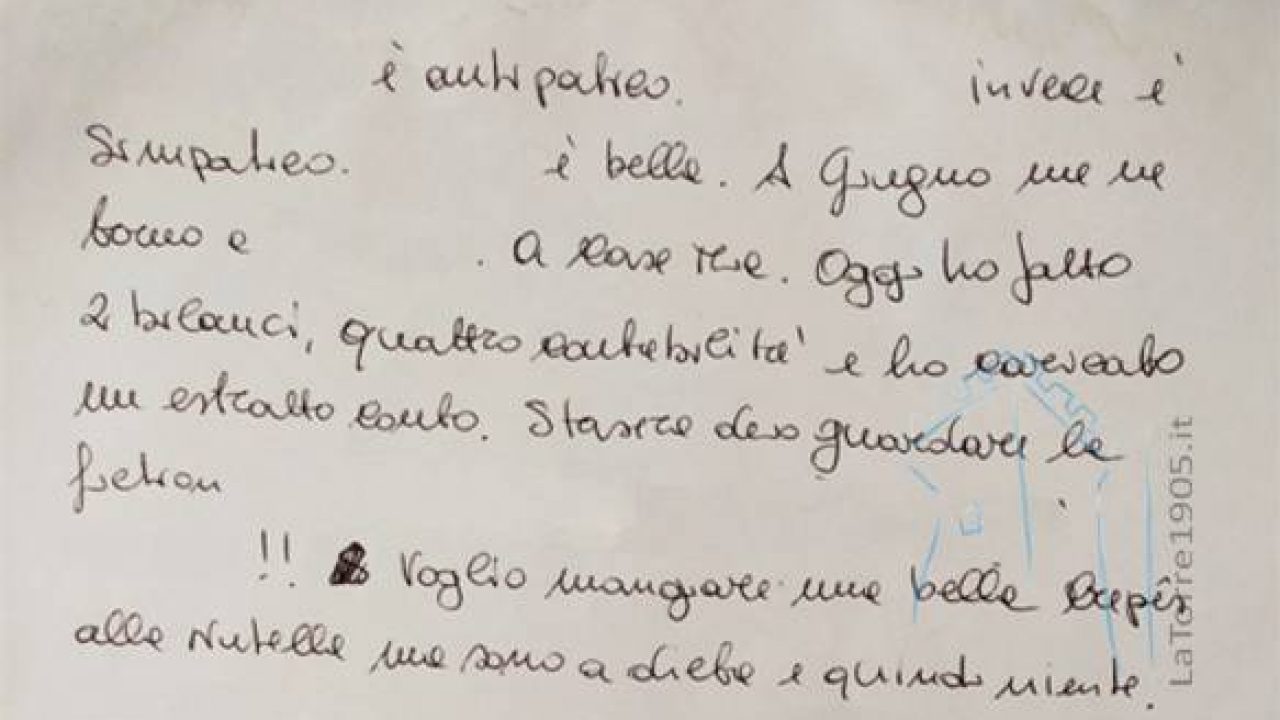 è antipatico. invece è
Simpatico. è bella. A Giugno me ne
torno a . A casa mia. Oggi ho fatto
2 bilanci, quattro contabilità e ho caricato
un estratto conto. Stasera devo guardare la
fiction
!! Voglio mangiare una bella crepes
alla Nutella ma sono a dieta e quindi niente.
LaTorre1905.it